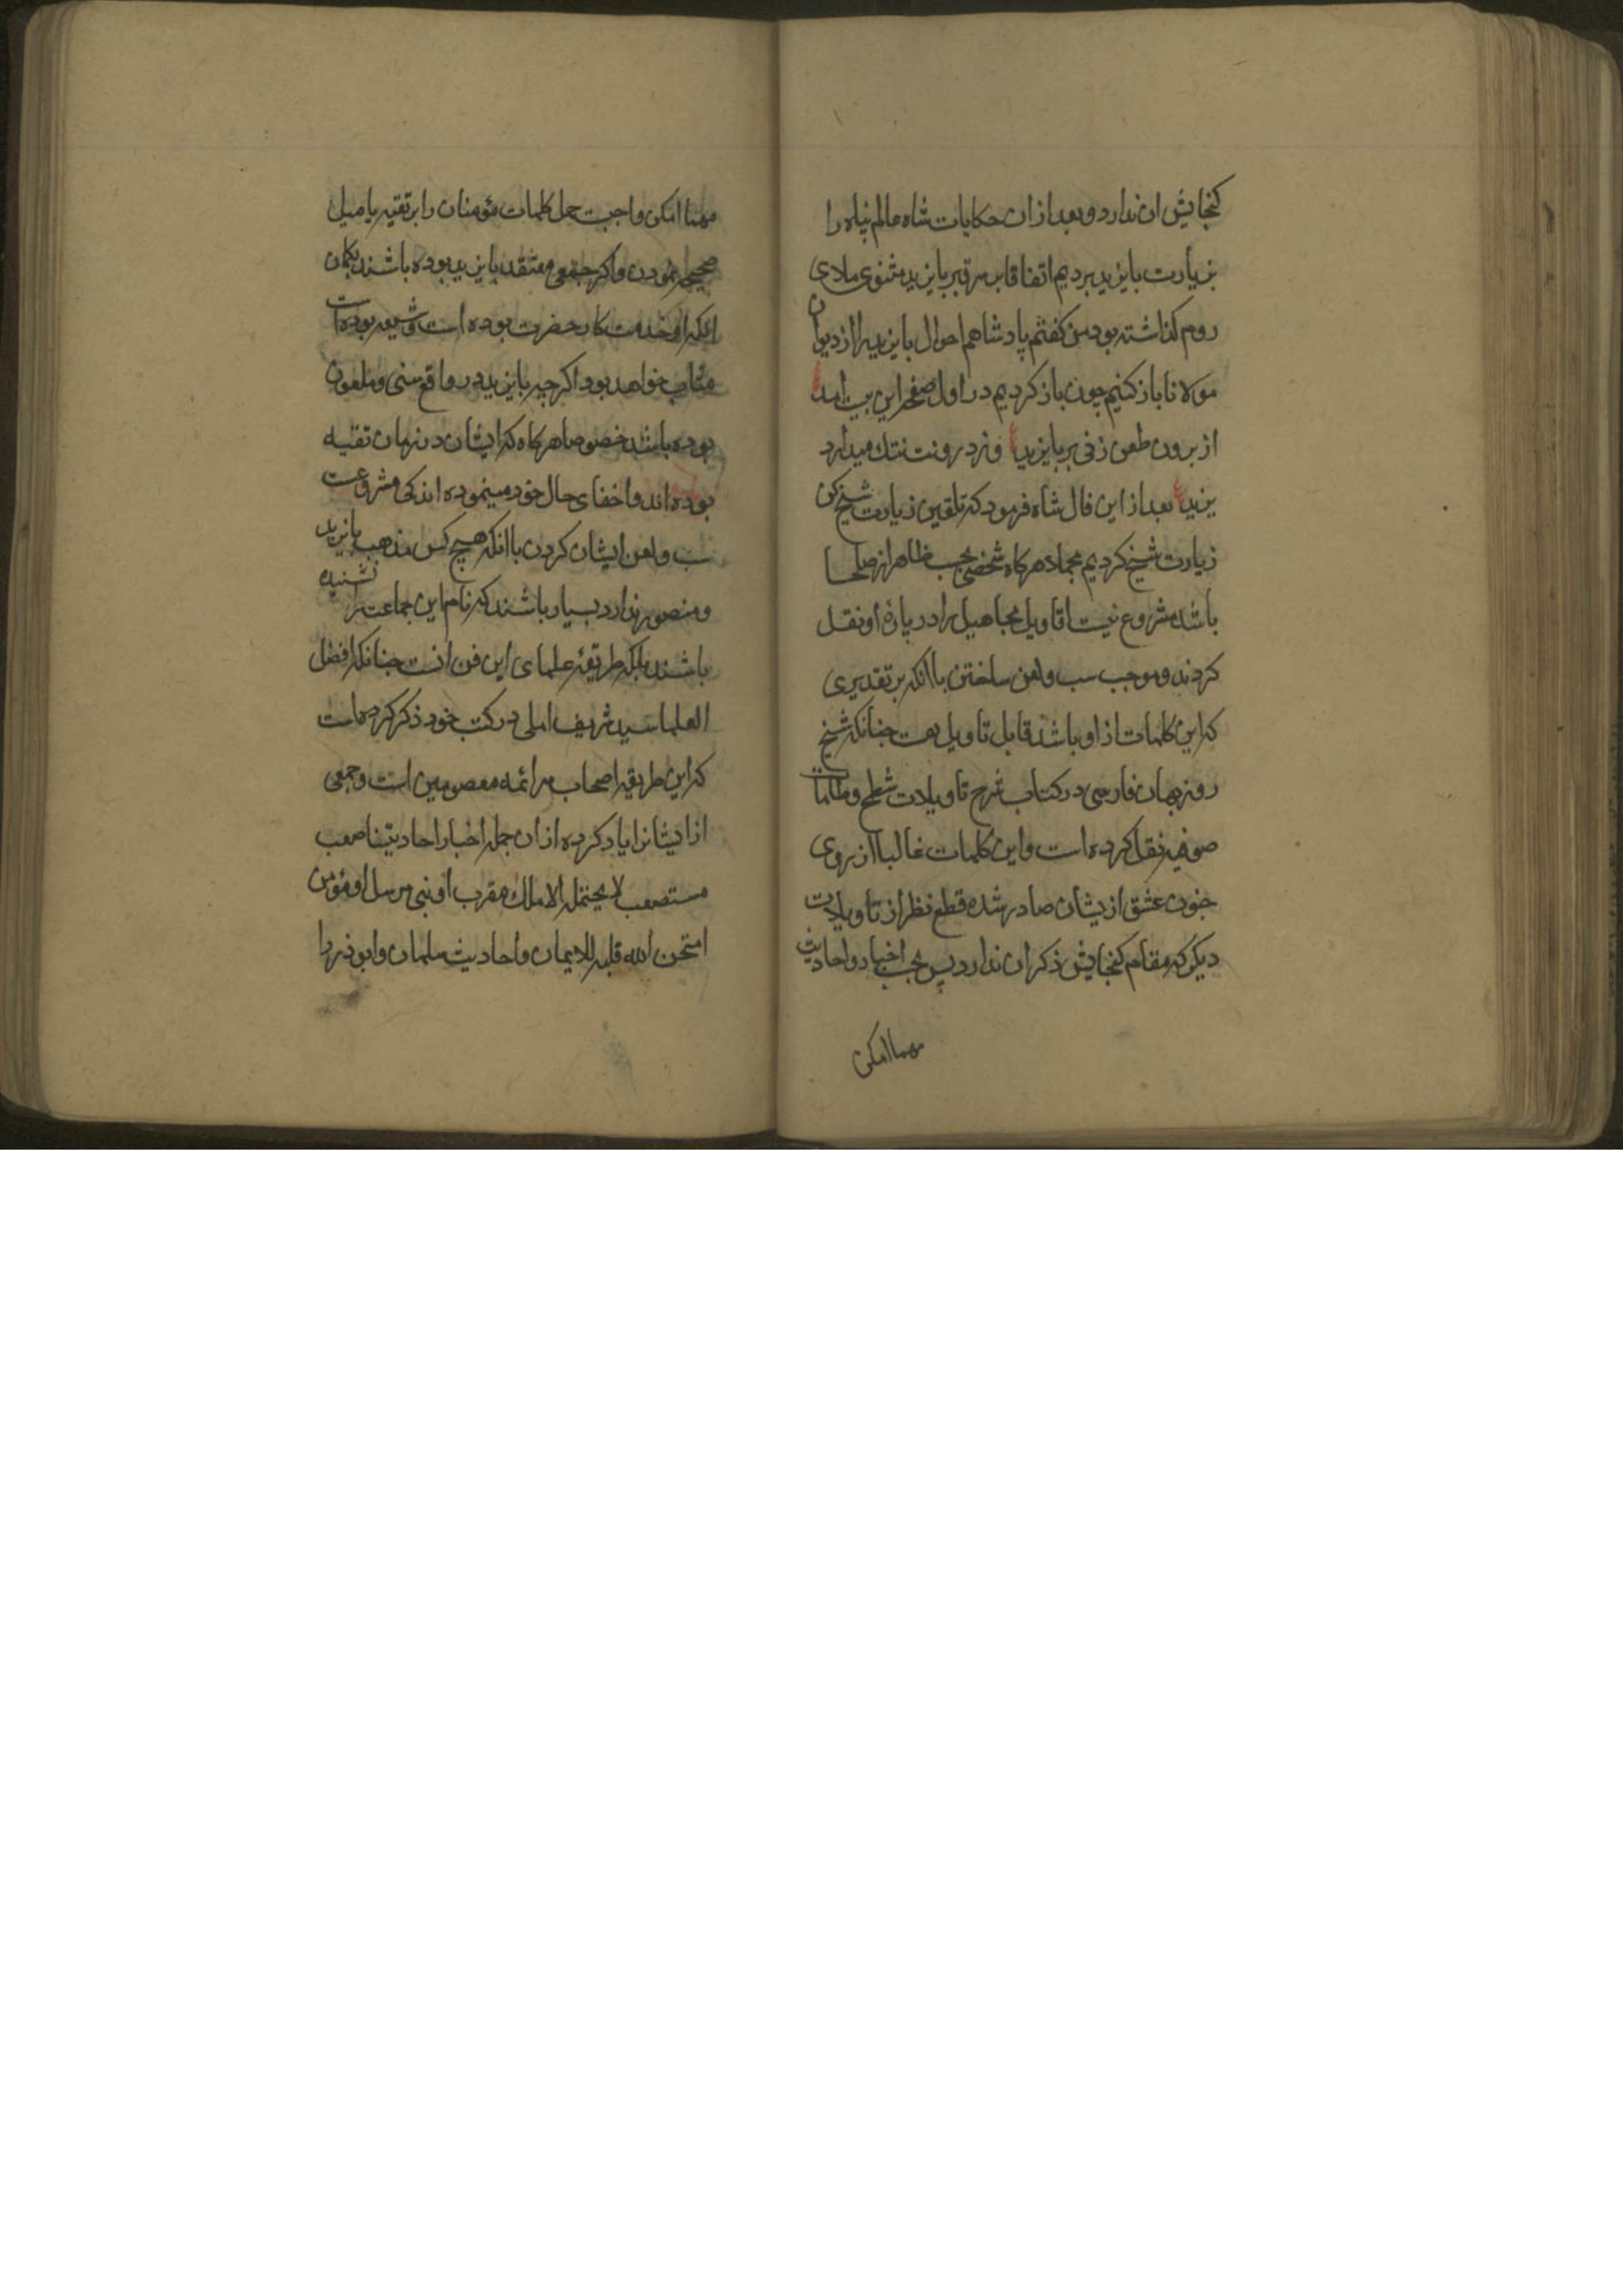 کنجایش ان ندارد و بعد از ان حکایات شاه عالم پناه را
بزیارت بایزید بردیم اتفاقا بر سر قبر بایزید مثنوی ملای
روم کذاشته بود من کفتم پادشاهم احوال بایزید را از دیوان
مولانا باز کنیم چون باز کردیم در اول صفحه این بیت امد
از برون طعن زنی بر بایزید و ز درونت ننک میدارد
یزید بعد از این فال شاه فرمود که تلقین زیارت شیخ کن
زیارت شیخ کردیم مجملا هر کاه شخصی بحسب ظاهر از صلحا
باشد مشروع نیست اقاویل مجاهیل را در باره او نقل
کردند و موجب سب و لعن ساختن با انکه بر تقدیری
که این کلمات از او باشد قابل تاویل هست جنانکه شیخ
روزبهان فارسی در کتاب شرح تاویلات شطح و طامات
صوفیه نقل کرده است و این کلمات غالبا از روی
جنون عشق از یشان صادر شده قطع نظر از تاویلات
دیکر که مقام کنجایش ذکر ان ندارد پس بحسب اخبار و احادیث
مهما امکن
مهما امکن واجبست حمل کلمات مؤمنان را بر تقیه یا میل
صحیحی نمودن و اکر جمعی معتقد بایزید بوده باشند بکمان
انکه او خدمتکار حضرت بوده است و شیعه بوده است
مثاب خواهند بود اکر چه بایزید در واقع سنی و ملعون
بوده باشد خصوصا هر کاه که ایشان در زمان تقیه
بوده اند و اخفای حال خود مینموده اند کی مشروعست
سب و لعن ایشان کردن با انکه هیچ کس مذهب بایزید
و منصور ندارد بسیار باشند که نام این جماعت را نشنیده
باشند بلکه طریقه علمای این فن انست جنانکه افضل
العلما سید شریف املی در کتب خود ذکر کرده است
که این طریقه اصحاب سر ائمه معصومین است و جمعی
از ایشانرا یاد کرده از ان جمله اخبار احادیثنا صعب
مستصعب لا یحتمله الا ملک مقرب او نبی مرسل او مؤمن
امتحن الله قلبه للایمان و احادیث سلمان و ابوذر را